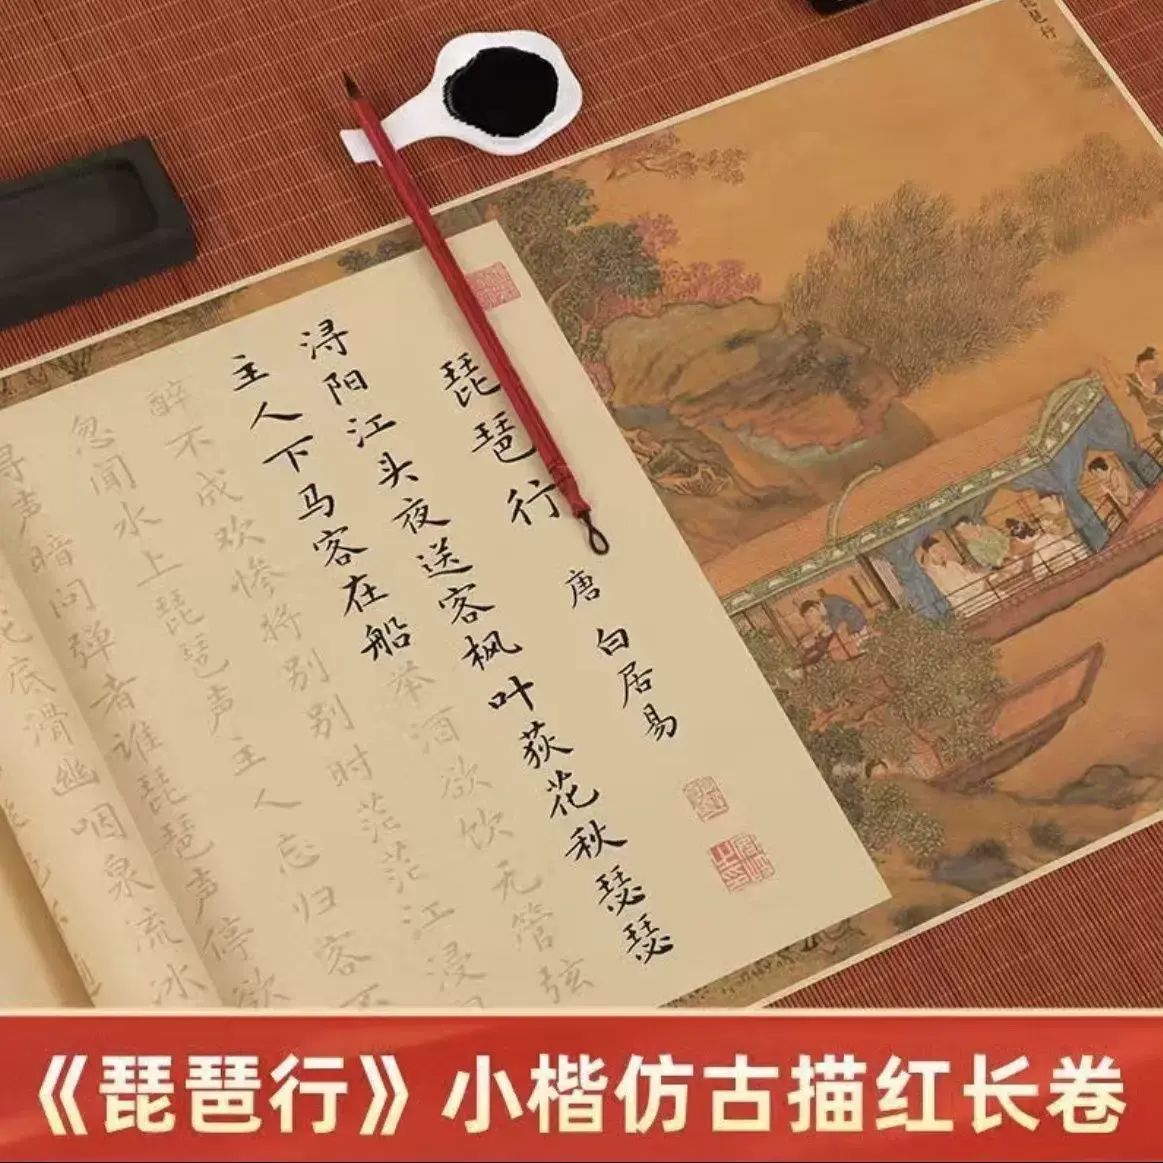 琵琶行
琵琶行
唐 白居易
浔阳江头夜送客枫叶荻花秋瑟瑟
主人下马客在船举酒欲饮无管弦
醉不成欢惨将别别时茫茫江浸
忽闻水上琵琶声主人忘归客不
寻声暗问弹者谁琵琶声停欲
底滑幽咽泉流冰
《琵琶行》小楷仿古描红长卷